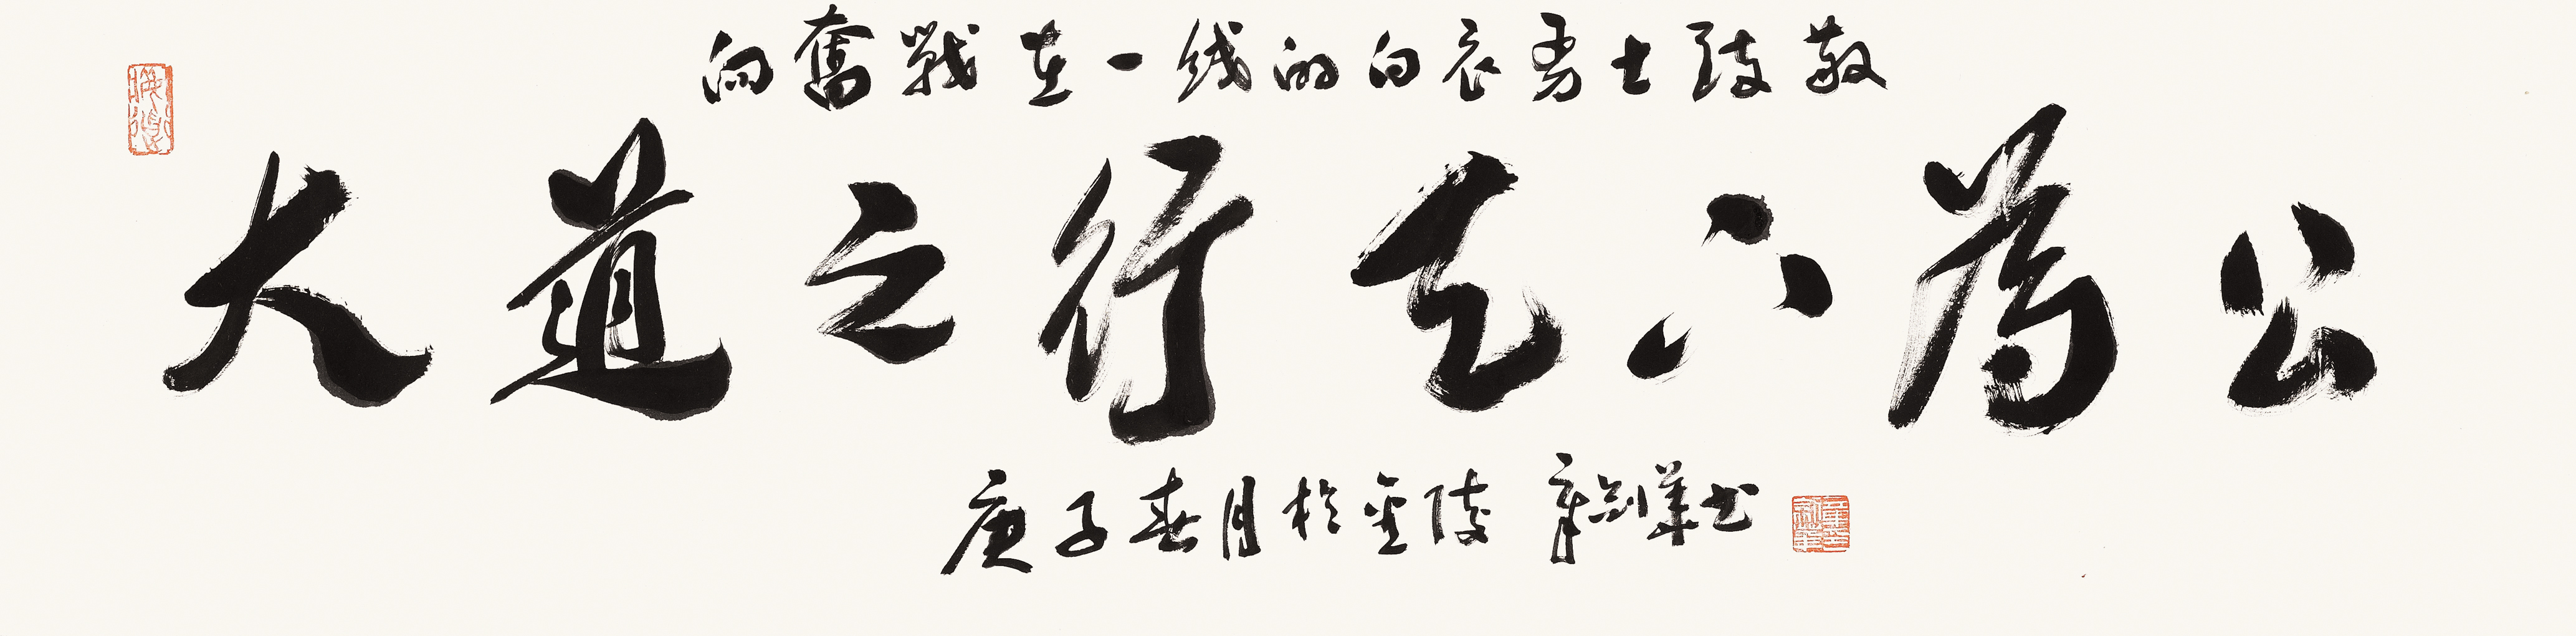 向奮戰在一线的白衣勇士致敬
大道之行天下為公
庚子春月於金陵 章劍華书